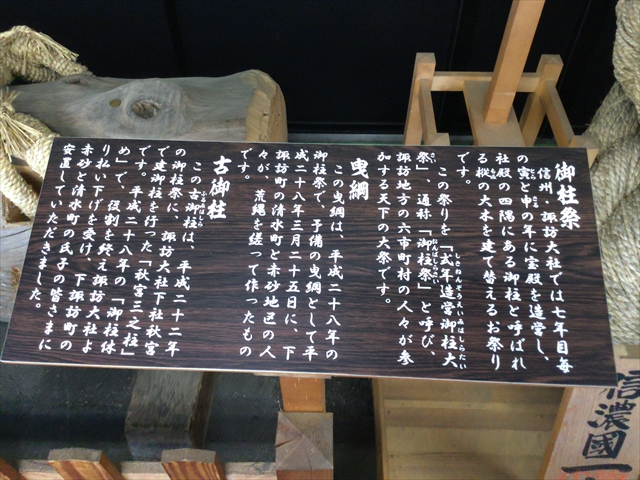 御柱祭
信州、諏訪大社では七年目毎
の寅と申の年に宝殿を造営し、
社殿の四隅にある御柱と呼ばれ
る樅の大木を建て替えるお祭り
です。
この祭りを、「式年造営御柱大
祭」、通称「御柱祭」と呼び、
諏訪地方の六市町村の人々が参
加する天下の大祭です。
曳綱
この曳綱は、平成二十八年の
御柱祭で、予備の曳綱として平
成二十八年三月二十五日に、下
諏訪町の清水町と赤砂地区の人
々が、荒縄を縒って作ったもの
です。
古御柱
この古御柱は、平成二十二年
の御柱祭に、諏訪大社下社秋宮
で建御柱を行った「秋宮三之柱」
です。平成二十八年の「御柱休
め」で、役割を終え諏訪大社よ
り払い下げを受け、下諏訪町の
赤砂と清水町の氏子の皆さまに
安置していただきました。
信濃國一